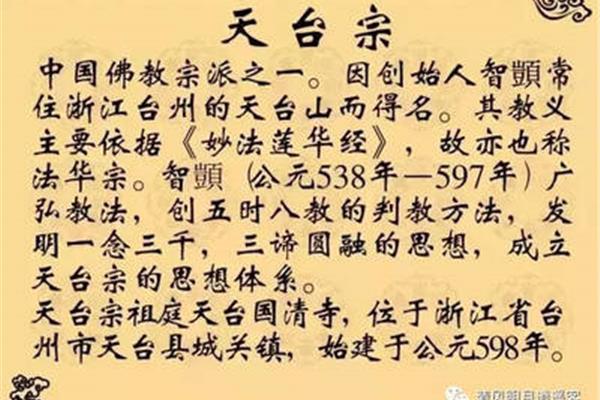 天台宗
中国佛教宗派之一。因创始人智顗常
住浙江台州的天台山而得名。其教义
主要依据《妙法莲华经》，故亦也称
法华宗。智顗（公元538年—597年）广
弘教法，创五时八教的判教方法，发
明一念三千，三谛圆融的思想，成立
天台宗的思想体系。
天台宗祖庭天台国清寺，位于浙江省台
州市天台县城关镇，始建于公元598年。